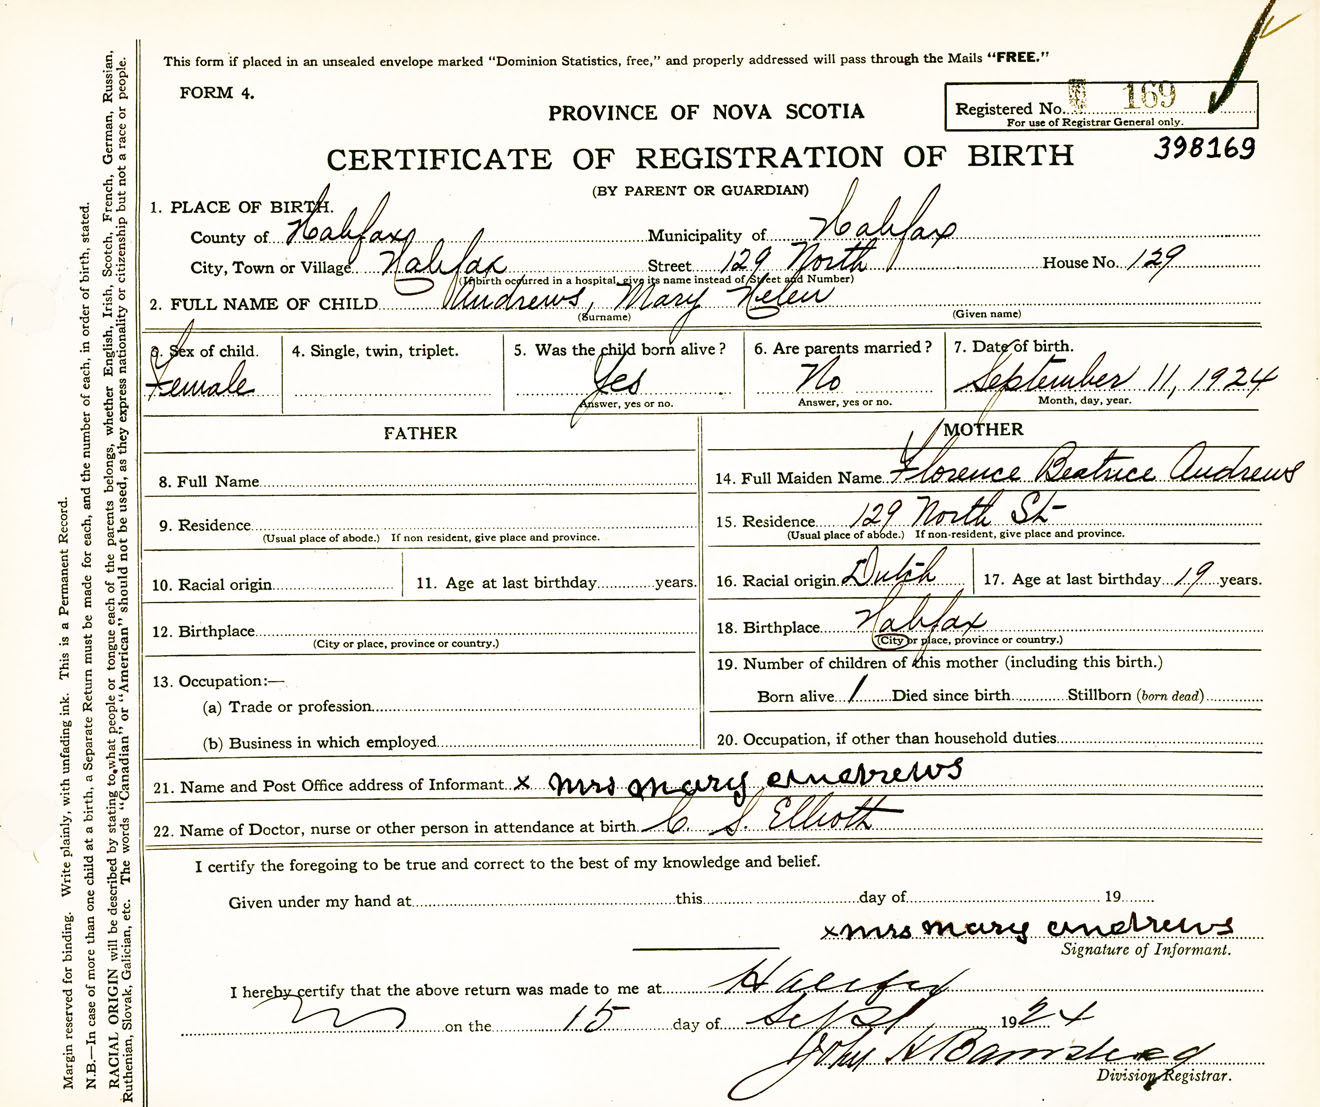 This form if placed in an unsealed envelope marked "Dominion Statistics, free," and properly addressed will pass through the Mails "FREE."
FORM 4.
PROVINCE OF NOVA SCOTIA
Registered No. 169
For use of Registrar General only.
398169
CERTIFICATE OF REGISTRATION OF BIRTH
(BY PARENT OR GUARDIAN)
1. PLACE OF BIRTH.
County of Halifax Municipality of Halifax
City, Town or Village Halifax Street 129 North House No. 129
(If birth occurred in a hospital, give its name instead of Street and Number)
2. FULL NAME OF CHILD Andrews, Mary Helen
(Surname) (Given name)
3. Sex of child. 4. Single, twin, triplet. 5. Was the child born alive? 6. Are parents married? 7. Date of birth.
Female Yes No September 11, 1924
Answer, yes or no. Answer, yes or no. Month, day, year.
FATHER
8. Full Name
9. Residence
(Usual place of abode.) If non resident, give place and province.
10. Racial origin 11. Age at last birthday years.
12. Birthplace
(City or place, province or country.)
13. Occupation:—
(a) Trade or profession
(b) Business in which employed
MOTHER
14. Full Maiden Name Florence Beatrice Andrews
15. Residence 129 North St
(Usual place of abode.) If non-resident, give place and province.
16. Racial origin Dutch 17. Age at last birthday 19 years.
18. Birthplace Halifax
(City or place, province or country.)
19. Number of children of this mother (including this birth.)
Born alive 1 Died since birth Stillborn (born dead)
20. Occupation, if other than household duties
21. Name and Post Office address of Informant x Mrs Mary Andrews
22. Name of Doctor, nurse or other person in attendance at birth C. S. Elliott
I certify the foregoing to be true and correct to the best of my knowledge and belief.
Given under my hand at this day of 19
x Mrs Mary Andrews
Signature of Informant.
I hereby certify that the above return was made to me at Halifax
on the 15 day of Sept 1924
John H Barnstead
Division Registrar.
Margin reserved for binding. Write plainly, with unfading ink. This is a Permanent Record.
N.B.—In case of more than one child at a birth, a Separate Return must be made for each, and the number of each, in order of birth, stated.
RACIAL ORIGIN will be described by stating to what people or tongue each of the parents belongs, whether English, Irish, Scotch, French, German, Russian,
Ruthenian, Slovak, Galician, etc. The words "Canadian" or "American" should not be used, as they express nationality or citizenship but not a race or people.